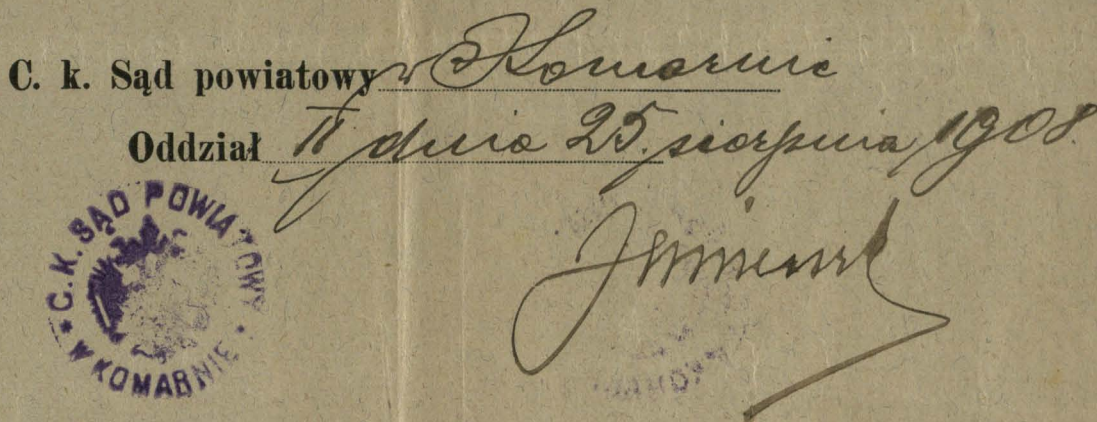 C. k. Sąd powiatowy w Komarnie
Oddział II. dnia 25. sierpnia 1908.
* C. K. SĄD POWIATOWY * W KOMARNIE